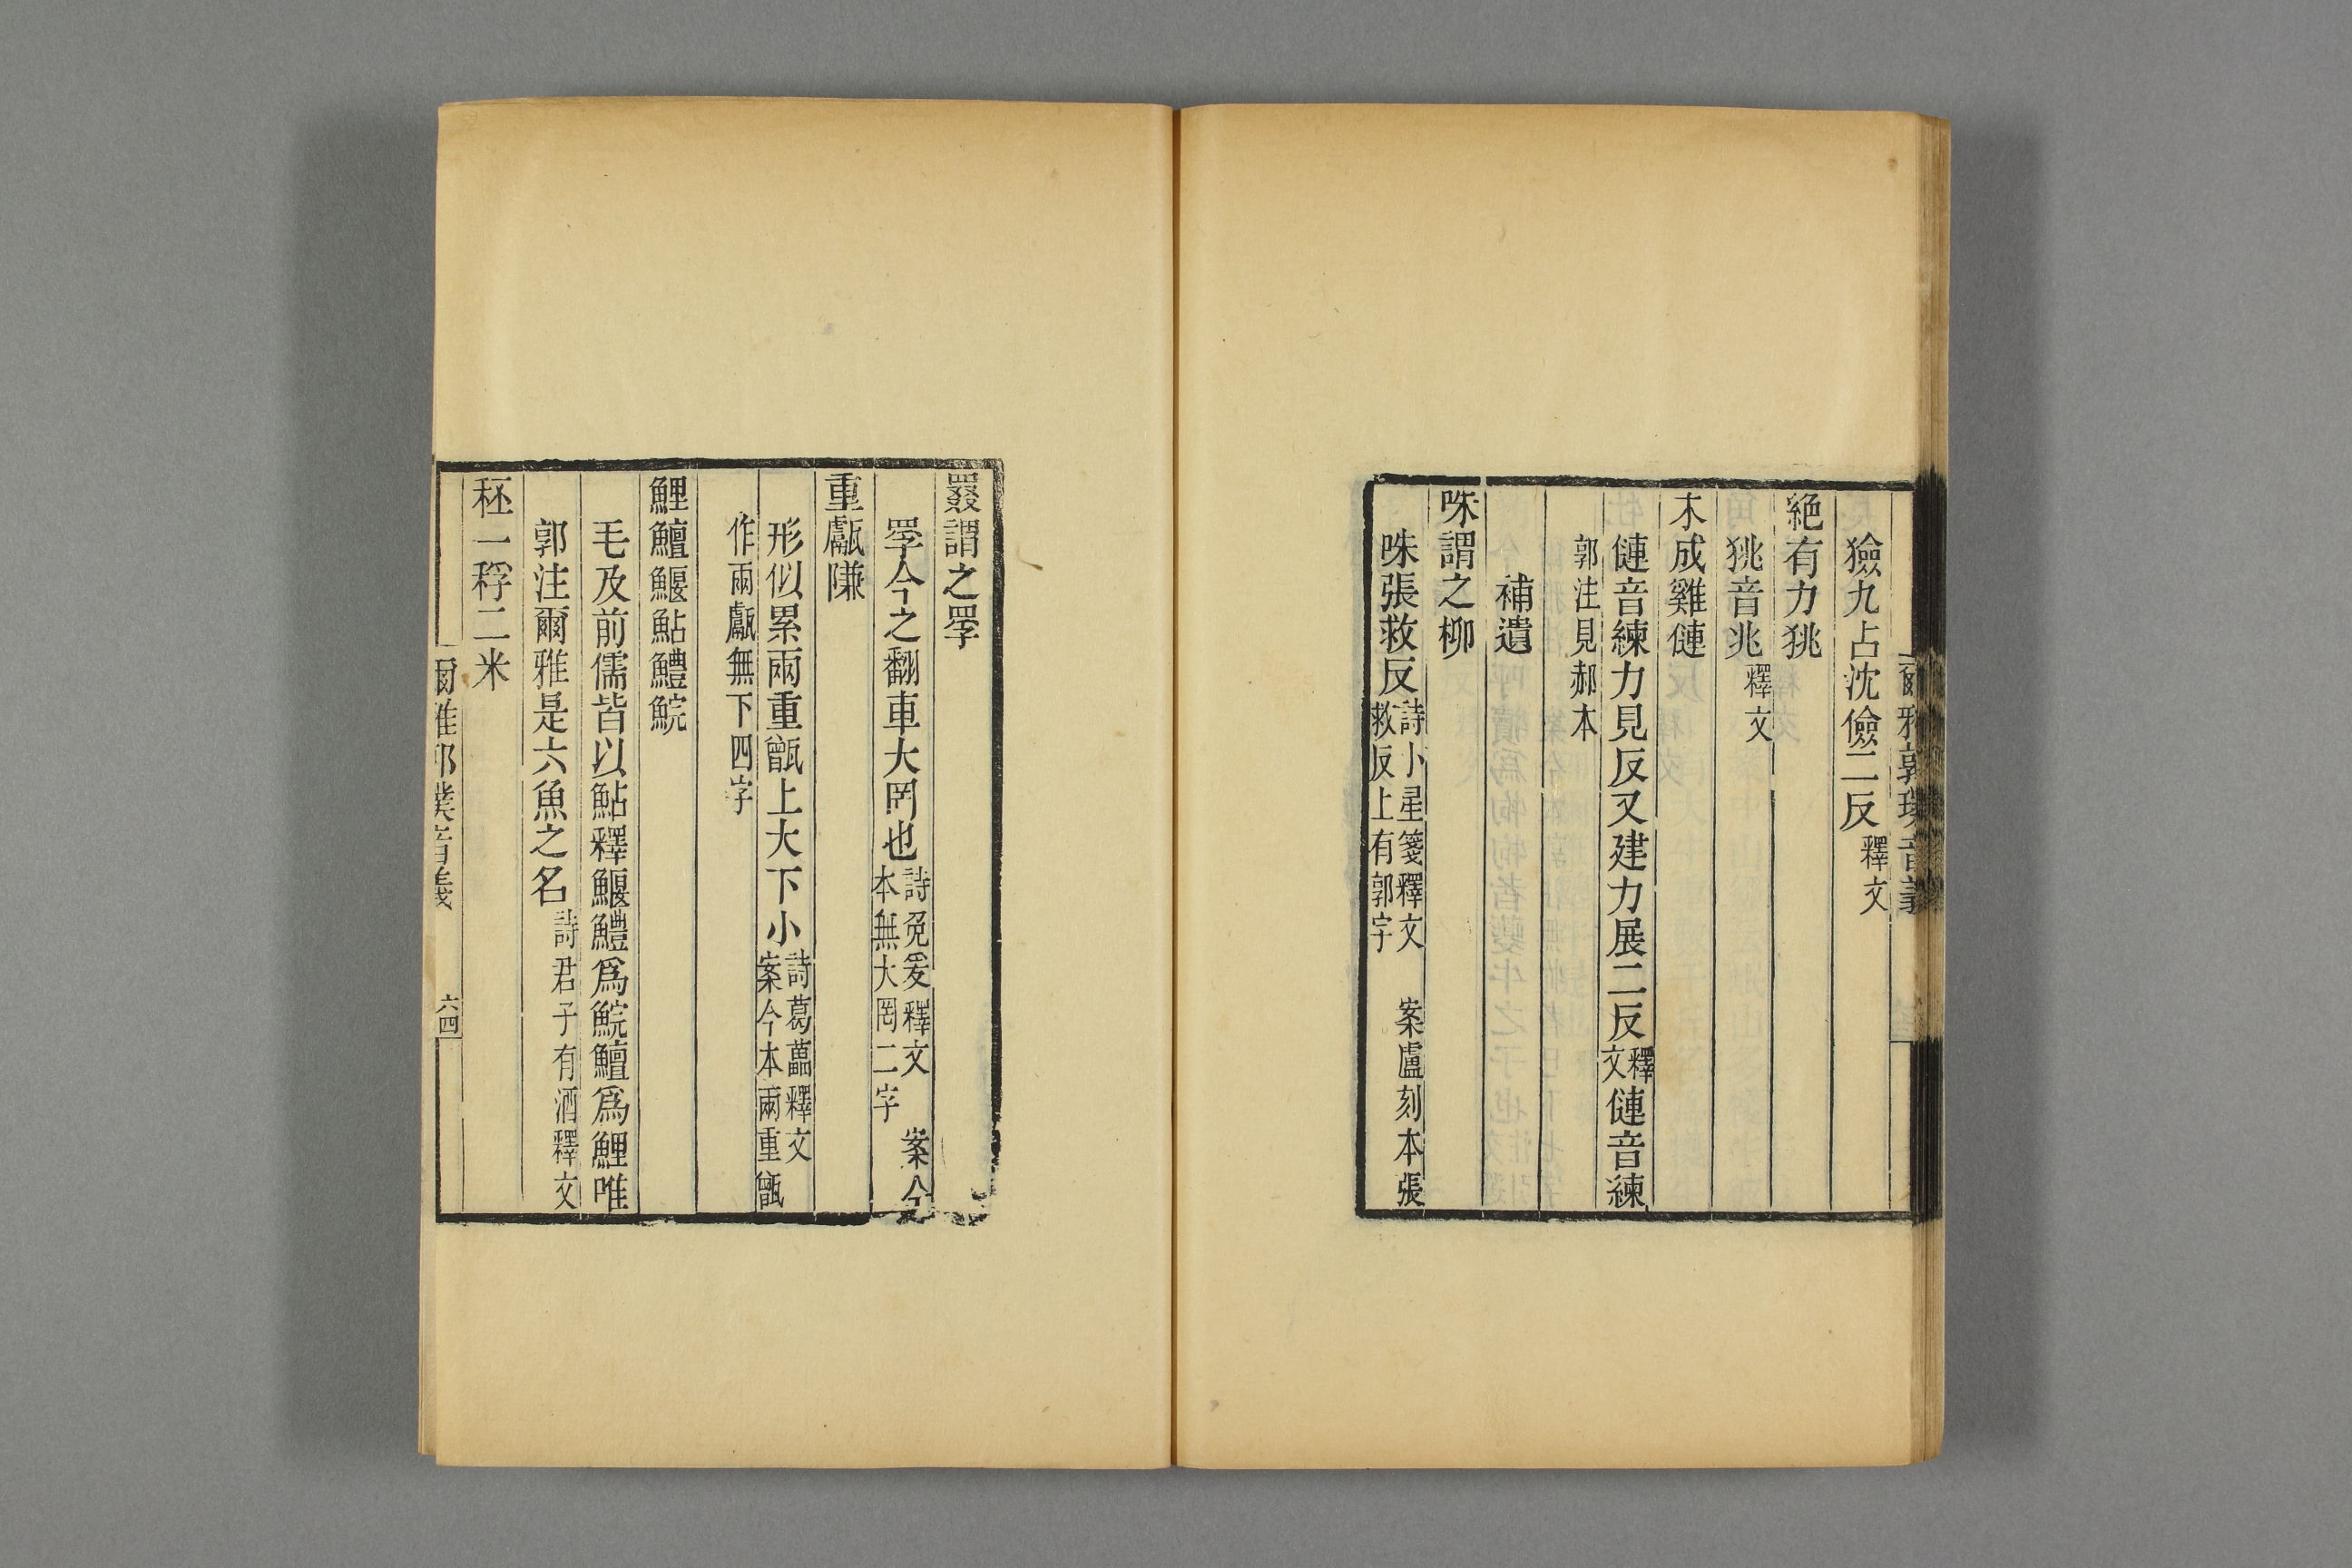 爾雅郭璞音義
獫九占沈儉二反釋文
絕有力狣
狣音兆釋文
未成雞僆
僆音練力見反又建力展二反釋文僆音練
郭注見郝本
補遺
咮謂之柳
咮張救反詩小星箋釋文 案盧刻本張救反上有郭字
罬謂之罦
罦今之翻車大罔也詩兔爰釋文 案今本無大罔二字
重甗隒
形似累兩重甑上大下小詩葛藟釋文案今本兩重甑
作兩甗無下四字
鯉鱣鰋鮎鱧鯇
毛及前儒皆以鮎釋鰋鱧為鯇鱣為鯉唯
郭注爾雅是六魚之名詩君子有酒釋文
秠一稃二米
爾雅郭璞音義 六四